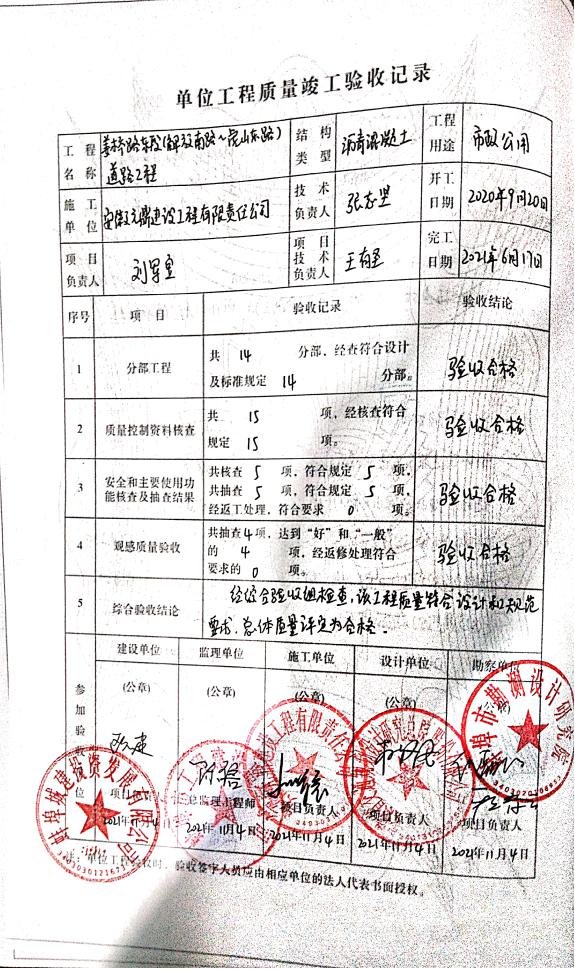 单位工程质量竣工验收记录
工程名称 姜桥路东段(解放南路~虎山东路)道路工程 结构类型 沥青混凝土 工程用途 市政公用
施工单位 建设工程有限责任公司 技术负责人 张志 开工日期 2020年9月20日
项目负责人 刘军 项目技术负责人 王有 完工日期 2021年6月17日
序号 项目 验收记录 验收结论
1 分部工程 共 14 分部,经查符合设计
及标准规定 14 分部。 验收合格
2 质量控制资料核查 共 15 项,经核查符合
规定 15 项。 验收合格
3 安全和主要使用功
能核查及抽查结果
共核查 5 项,符合规定 5 项,
共抽查 5 项,符合要求 5 项,
经返工处理,符合要求 0 项。
验收合格
4 观感质量验收
共抽查4项,达到“好”和“一般”
的 4 项,经返修处理符合
要求的 0 项。
验收合格
5 综合验收结论 经综合验收组检查,该工程质量符合设计和规范
要求,总体质量评定为合格。
参加验收单位
建设单位 监理单位 施工单位 设计单位 勘察单位
(公章) (公章) (公章) (公章) (公章)
项目负责人 总监理工程师 项目负责人 项目负责人 项目负责人
2021年11月4日 2021年11月4日 2021年11月4日 2021年11月4日 2021年11月4日
蚌埠城建投资发展有限公司
建设工程有限责任公司
蚌埠市勘测设计研究院
注:单位工程验收时,验收签字人员应由相应单位的法人代表书面授权。